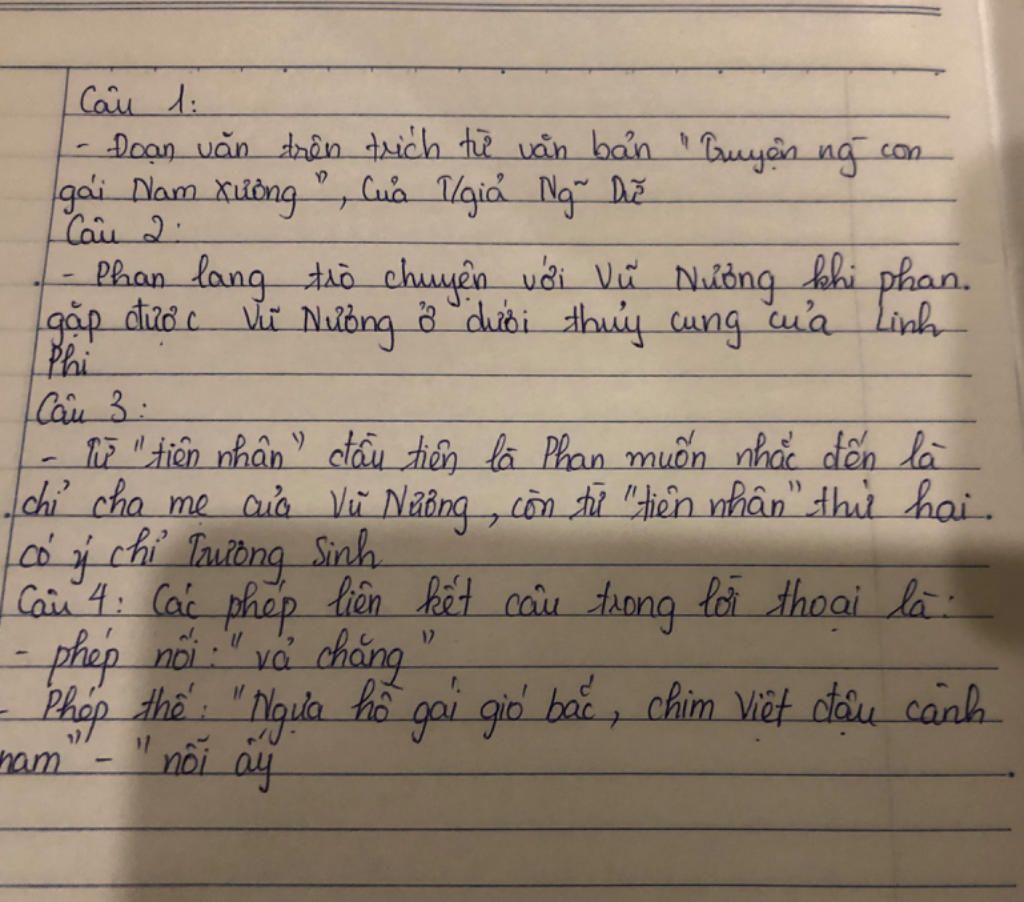 Câu 1:
- Đoạn văn trên trích từ văn bản "Truyện ng~ con
gái Nam Xương", Của T/giả Ng~ Dữ
Câu 2:
- Phan lang trò chuyện với Vũ Nương khi phan.
gặp được Vũ Nương ở dưới thuỷ cung của Linh
Phi
Câu 3:
- Từ "tiên nhân" đầu tiên là Phan muốn nhắc đến là
chỉ cha mẹ của Vũ Nương, còn từ "tiên nhân" thứ hai.
có ý chỉ Trương Sinh
Câu 4: Các phép liên kết câu trong lời thoại là:
- phép nối: "vả chăng"
- Phép thế: "Ngựa hồ gái gió bấc, chim Việt đậu cành
nam" - "nỗi ấy